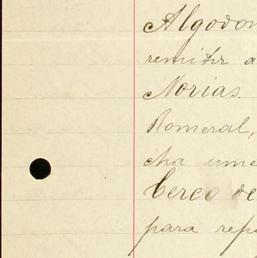 Algodon
remitir a
Norias.
Romeral,
cha ume
Cerca de
para rep